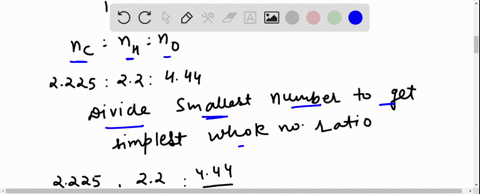 n_C : n_H : n_O
2.225 : 2.2 : 4.44
Divide smallest number to get
simplest whole no. ratio
2.225 , 2.2 : 4.44